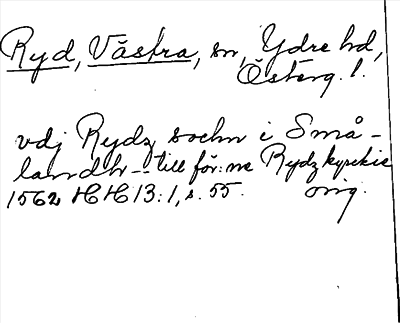 Ryd, Västra, sn, Ydre hd,
Österg. l.
vdj Rydz sochn i Små-
landh -- till för:ne Rydz kyrckie
1562 HH 13:1, s. 55. orig.